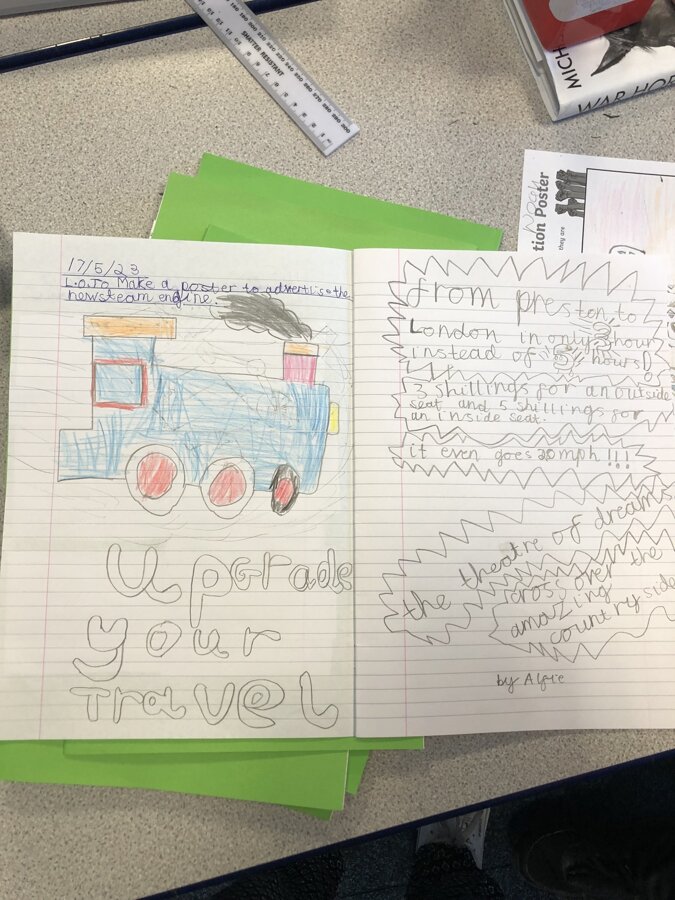 SHATTER RESISTANT
MICH
WAR HOR
tion Poster
they are
17/5/23
L.O.To Make a poster to advertise the
new steam engine.
Upgrade
your
Travel
from preston to
London in only 3 hours
instead of 5 hours!
3 shillings for an outside
seat and 5 shillings for
an inside seat.
it even goes 30mph!!!
the theatre of dreams
cross over the
amazing
countryside
by Alfie